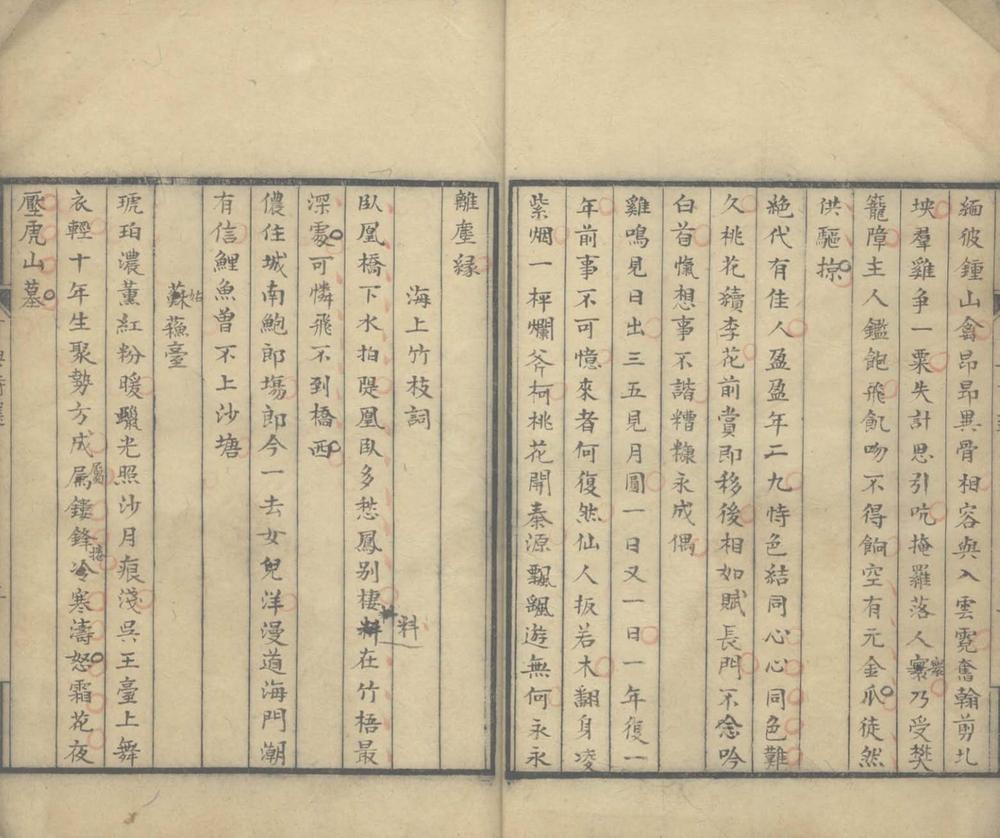 緬彼鍾山禽昂昂異骨相容與入雲霓奮翰剪北
坱羣雞爭一粟失計思引吭掩羅落人寰乃受樊
籠障主人鑑飽飛飢吻不得餉空有元金爪徒然
供驅掠
絕代有佳人盈盈年二九恃色結同心心同色難
久桃花續李花前賞即移後相如賦長門不念吟
白首愾想事不諧糟糠永成偶
雞鳴見日出三五見月圓一日又一日一年復一
年前事不可憶來者何復然仙人扳若木翻身凌
紫烟一枰爛斧柯桃花開秦源飄飄遊無何永永
離塵緣
海上竹枝詞
臥凰橋下水拍隄凰臥多愁鳳别棲料在竹梧最
深處可憐飛不到橋西
儂住城南鮑郎塲郎今一去女兒洋漫道海門潮
有信鯉魚曾不上沙塘
姑蘇臺
琥珀濃薰紅粉暖蠟光照沙月痕淺吳王臺上舞
衣輕十年生聚勢方成屬鏤鋒冷寒濤怒霜花夜
壓虎山墓